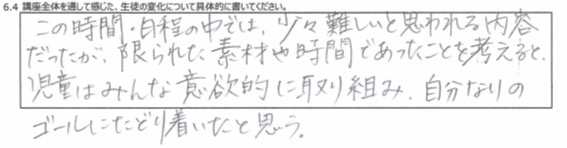 6.4 講座全体を通して感じた、生徒の変化について具体的に書いてください。
この時間・日程の中では、少々難しいと思われる内容
だったが、限られた素材や時間であったことを考えると、
児童はみんな意欲的に取り組み、自分なりの
ゴールにたどり着いたと思う。